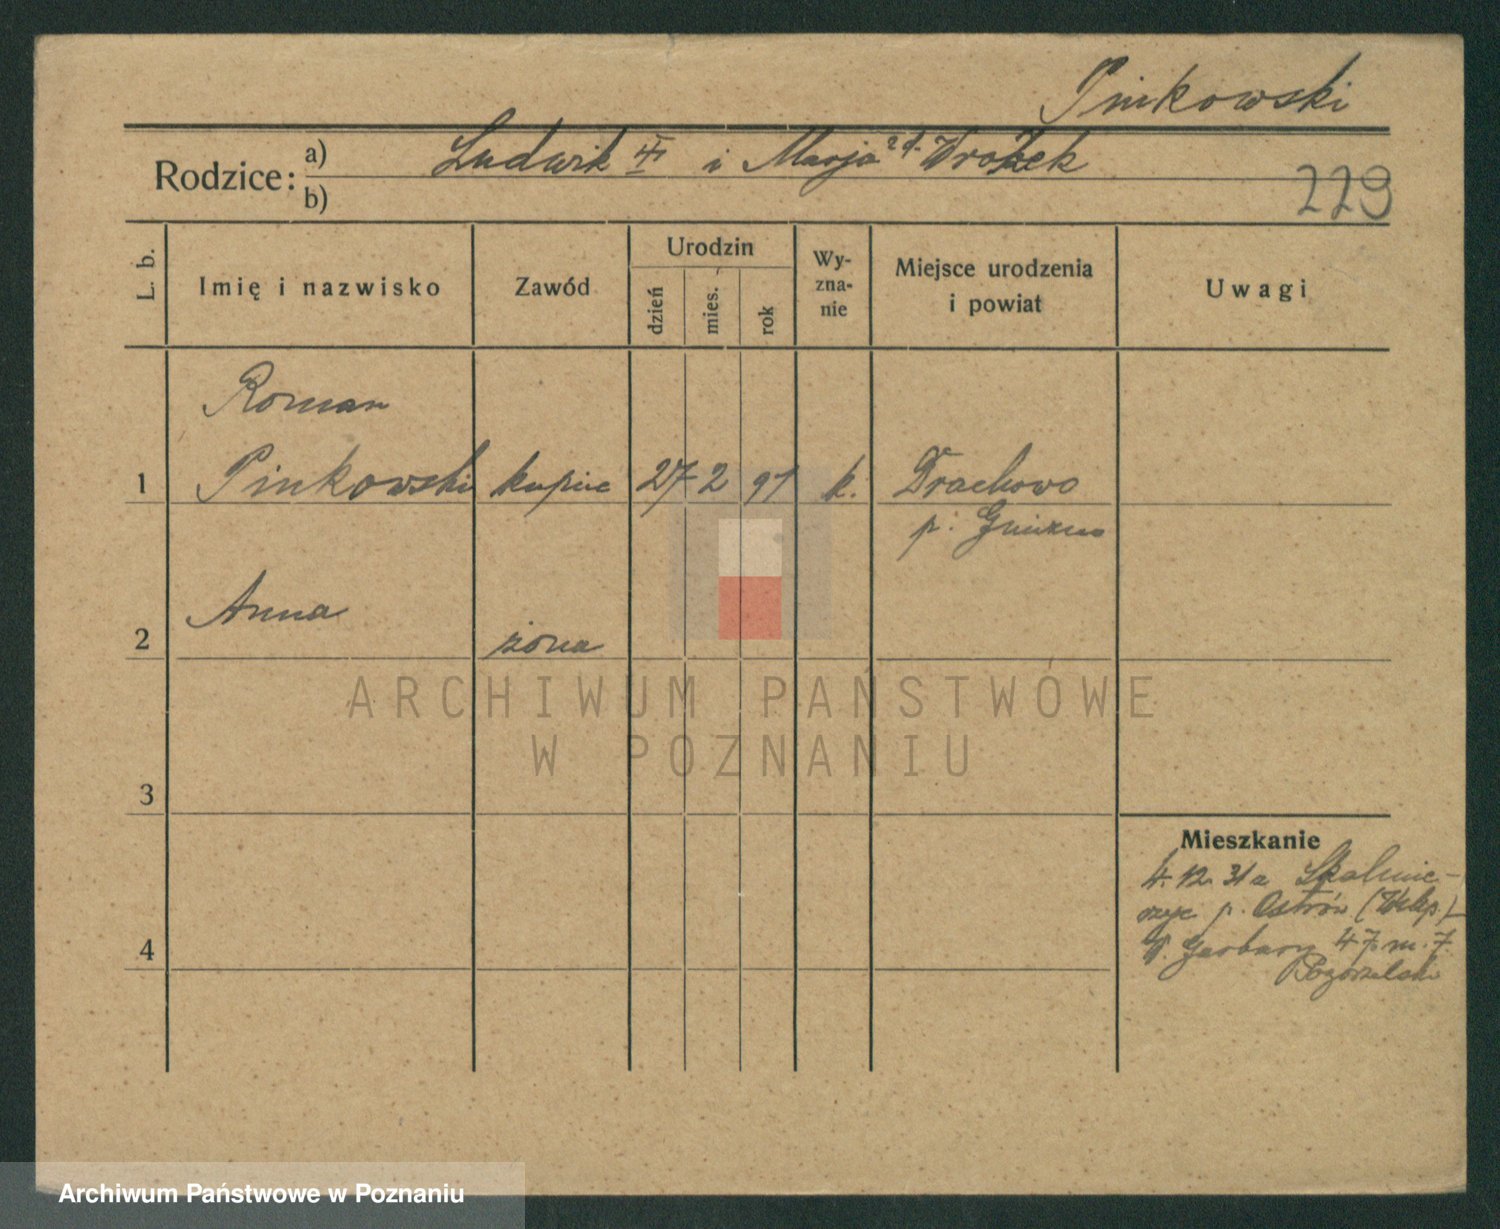 Pinkowski
Rodzice: a) Ludwik i Marja zd. Wrożek
b)
229
L. b.
Imię i nazwisko
Zawód
Urodzin
dzień
mies.
rok
Wy-
zna-
nie
Miejsce urodzenia
i powiat
Uwagi
Roman
1 Pinkowski kupiec 27 2 91 k. Drachowo
p. Gniezno
Anna
2 żona
ARCHIWUM PAŃSTWOWE
W POZNANIU
3
Mieszkanie
4. 12. 31 a Skalmie-
rzyc p. Ostrów (Wlkp.)
4 W. Garbary 47 m. 7.
Archiwum Państwowe w Poznaniu